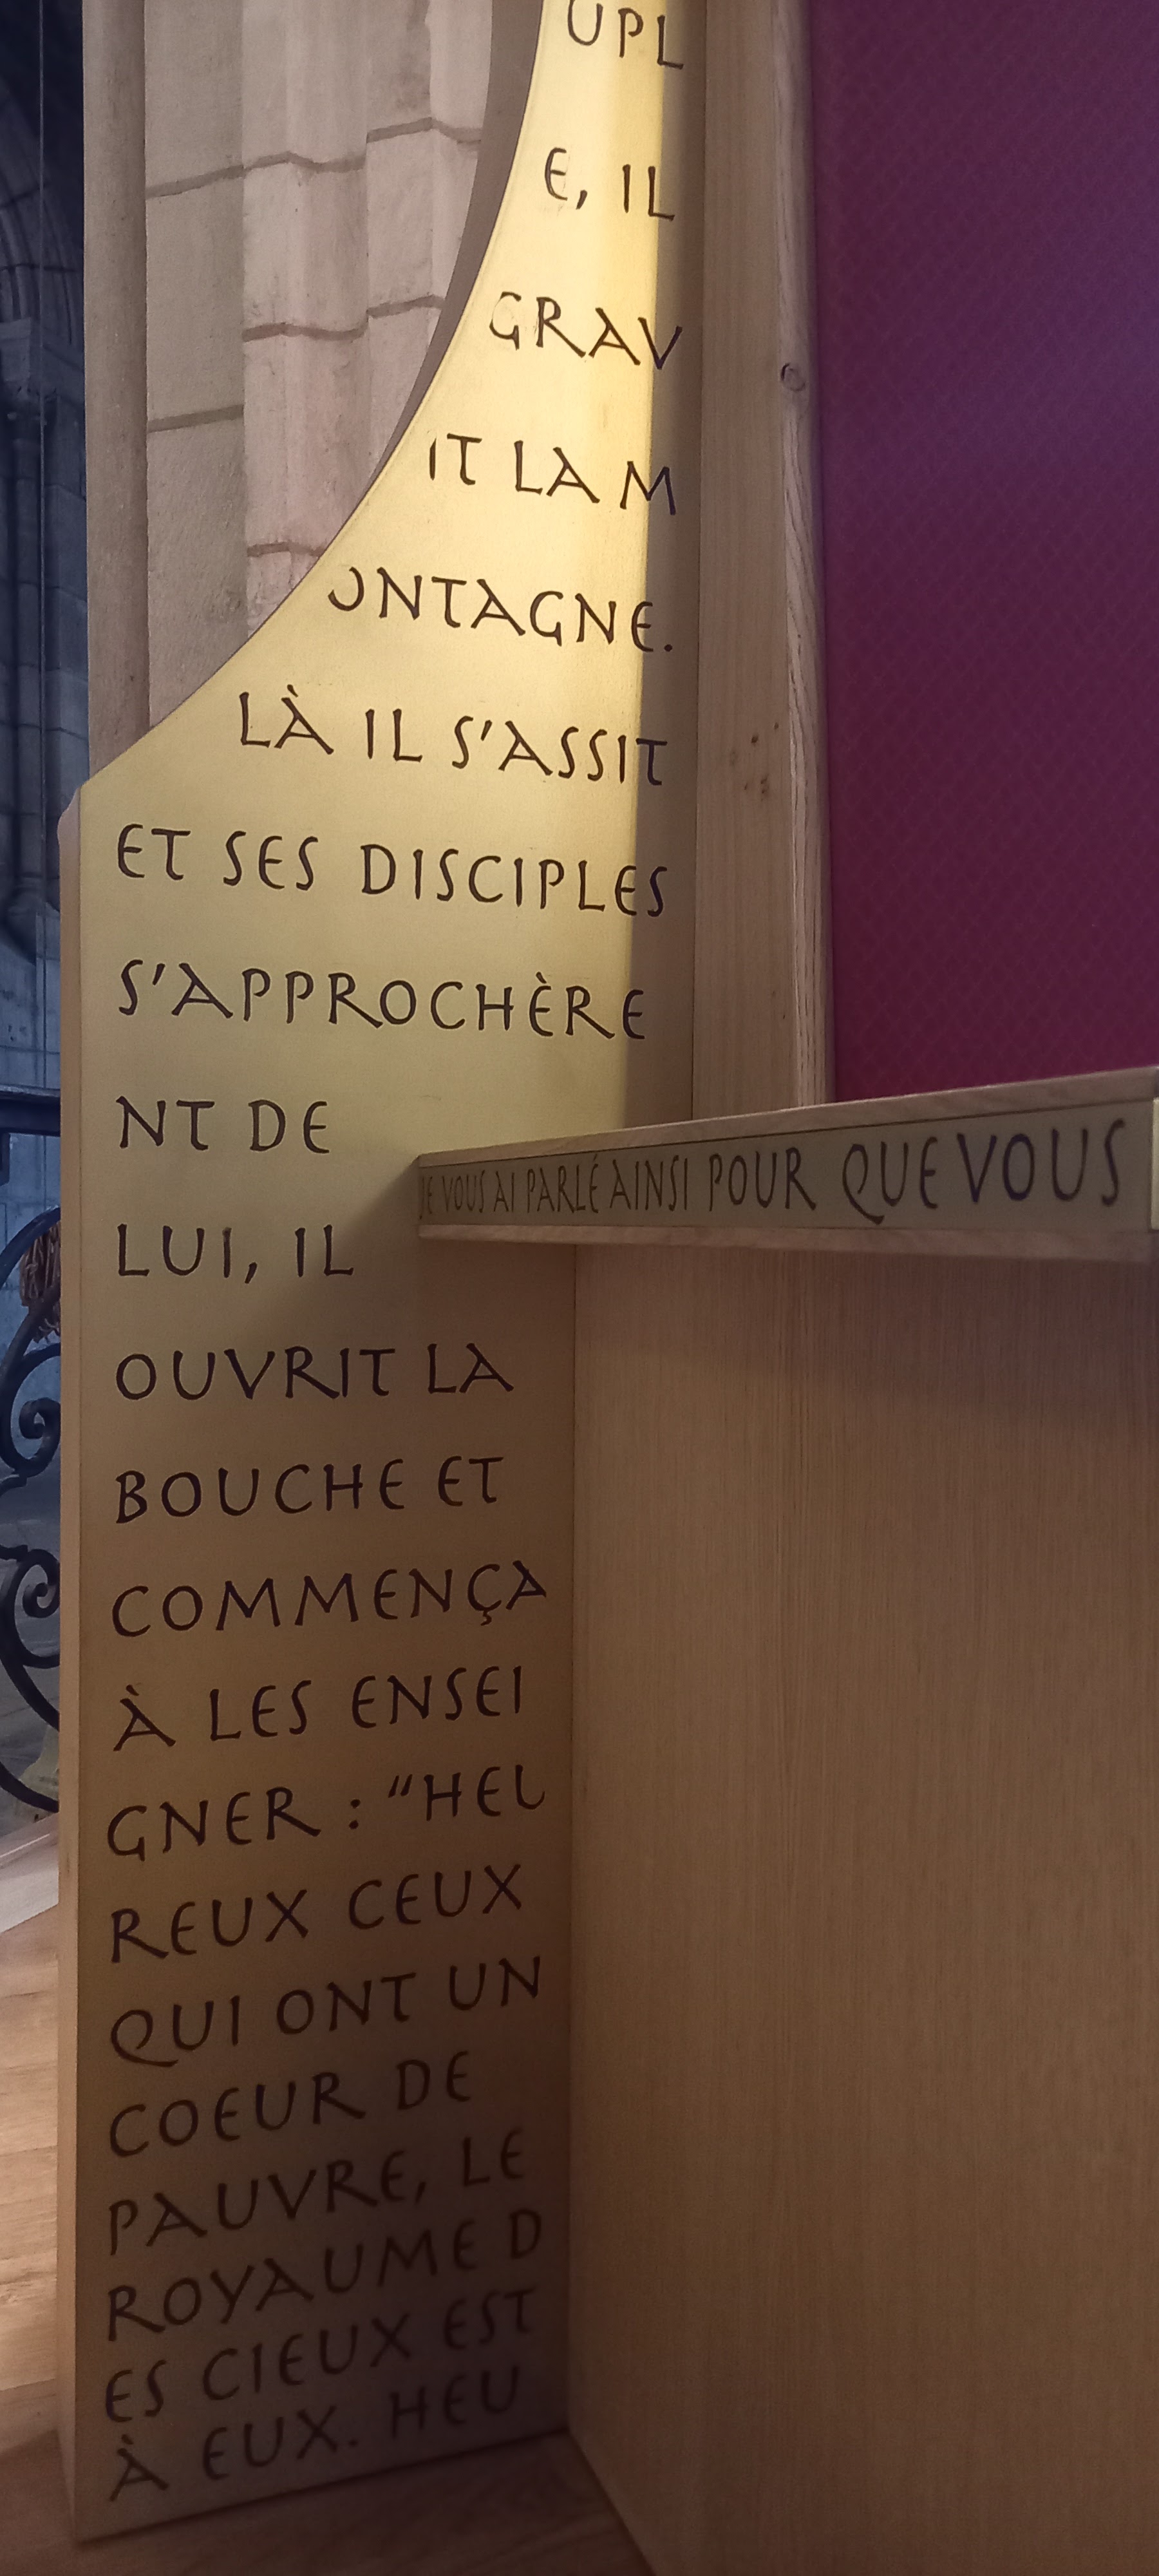 UPL
E, IL
GRAV
IT LA M
ONTAGNE.
LÀ IL S'ASSIT
ET SES DISCIPLES
S'APPROCHÈRE
NT DE
LUI, IL
OUVRIT LA
BOUCHE ET
COMMENÇA
À LES ENSEI
GNER : “HEU
REUX CEUX
QUI ONT UN
COEUR DE
PAUVRE, LE
ROYAUME D
ES CIEUX EST
À EUX. HEU
JE VOUS AI PARLÉ AINSI POUR QUE VOUS